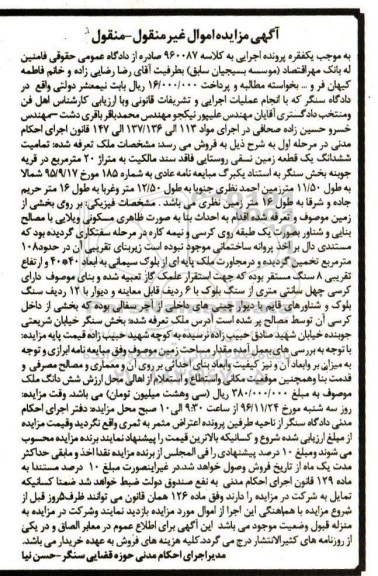 آگهی مزایده اموال غیر منقول-منقول
به موجب یکفقره پرونده اجرایی به کلاسه ۹۶۰۰۸۷ صادره از دادگاه عمومی حقوقی فامنین
له بانک مهراقتصاد (موسسه بسیجیان سابق) بطرفیت آقای رضا رضایی زاده و خانم فاطمه
کیهان فر و ... بخواسته مطالبه و پرداخت ۱۶/۰۰۰/۰۰۰ ریال بابت نیمعشر دولتی واقع در
دادگاه سنگر که با انجام عملیات اجرایی و تشریفات قانونی وبا ارزیابی کارشناس اهل فن
ومنتخب دادگستری آقایان مهندس علیپور نیکجو ومهندس محمدباقر باقری دشت -مهندس
خسرو حسین زاده صحافی در اجرای مواد ۱۱۳ الی ۱۳۷/۱۳۶ الی ۱۴۷ قانون اجرای احکام
مدنی در مرحله اول به شرح ذیل به فروش می رسد: مشخصات ملک تعرفه شده: تمامیت
ششدانگ یک قطعه زمین نسقی روستایی فاقد سند مالکیت به متراژ ۲۰۰ مترمربع در قریه
جوبنه بخش سنگر به استناد یکبرگ مبایعه نامه عادی به شماره ۱۸۵ مورخ ۹۵/۹/۱۷ شمالا
به طول ۱۱/۵۰ مترزمین احمد نظری جنوبا به طول ۱۲/۵۰ متر وغربا به طول ۱۶ متر حریم
جاده و شرقا به طول ۱۶ متر زمین نظری می باشد . مشخصات فیزیکی: بر روی بخشی از
زمین موصوف و تعرفه شده اقدام به احداث بنا به صورت ظاهری مسکونی ویلایی با مصالح
بنایی و شناور بصورت یک طبقه روی کرسی و نیمه کاره در مرحله سفتکاری گردیده بود که
مستندی دال بر اخذ پروانه ساختمانی موجود نبوده است زیربنای تقریبی آن در حدود ۱۰۸
مترمربع تخمین گردیده و درمجاورت ملک پایه ای از بلوک سیمانی به ابعاد ۴۰*۴۰ و ارتفاع
تقریبی ۸ سنگ مستقر بوده که جهت استقرار علمک گاز تعبیه شده و بنای موصوف دارای
کرسی چهل سانتی متری از سنگ بلوک با ۶ ردیف قابل معاینه و دیوار با ۱۲ ردیف سنگ
بلوک و شناورهای قائم با دیوار چینی های داخلی از آجر سفالی بوده که بخشی از داخل
کرسی آن توسط مصالح پر شده است آدرس ملک تعرفه شده: بخش سنگر خیابان شریعتی
جوبنده خیابان شهید صادق حبیب زاده نرسیده به کوچه شهید حبیب زاده قیمت پایه مزایده:
با توجه به بررسی های بعمل آمده مقدار مساحت زمین موصوف وفق مبایعه نامه ابرازی و توجه
به میزان بر وابعاد آن و نیز کیفیت وابعاد بنای احداثی بر روی آن ومعماری و مصالح مصرفی و
قدمت بنا وهمچنین موقعیت مکانی واستطلاع و استعلام از اهالی محل ارزش شش دانگ ملک
موصوف به مبلغ ۳۸۰/۰۰۰/۰۰۰ ریال (سی وهشت میلیون تومان) می باشد. وقت مزایده:
روز سه شنبه مورخ ۹۶/۱۱/۲۴ از ساعت ۹:۳۰ الی ۱۰ صبح محل مزایده: دفتر اجرای احکام
مدنی دادگاه سنگر از ناحیه طرفین پرونده اعتراض مثمر به ثمری واقع نگردید وقیمت مزایده
از مبلغ ارزیابی شده شروع و کسانیکه بالاترین قیمت را پیشنهاد نمایند برنده مزایده محسوب
می شوند ومبلغ ۱۰ درصد پیشنهادی را فی المجلس از برنده مزایده نقدا اخذ و مابقی حداکثر
مدت یک ماه از تاریخ فروش وصول خواهد شد.در غیراینصورت مبلغ ۱۰ درصد مستندا به
ماده ۱۲۹ قانون اجرای احکام مدنی به نفع صندوق دولت ضبط خواهد شد ضمنا کسانیکه
تمایل به شرکت در مزایده را دارند وفق ماده ۱۲۶ همان قانون می توانند ظرف۵روز قبل از
شروع مزایده با هماهنگی این اجرا از اموال مورد مزایده بازدید نمایند وشرکت در مزایده به
منزله قبول وضعیت موجود می باشد این آگهی برای اطلاع عموم در معابر الصاق و در یکی
از روزنامه های کثیرالانتشار درج می گردد.کلیه هزینه های فروش به عهده خریدار می باشد.
مدیر اجرای احکام مدنی حوزه قضایی سنگر -حسن نیا